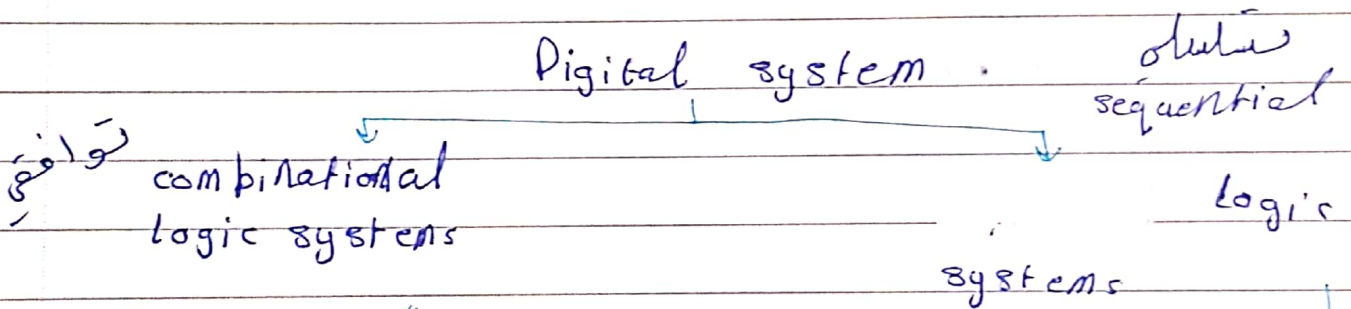 Digital system.
تسلسلي
sequential
توافقي
combinational
logic systems
Logic
systems